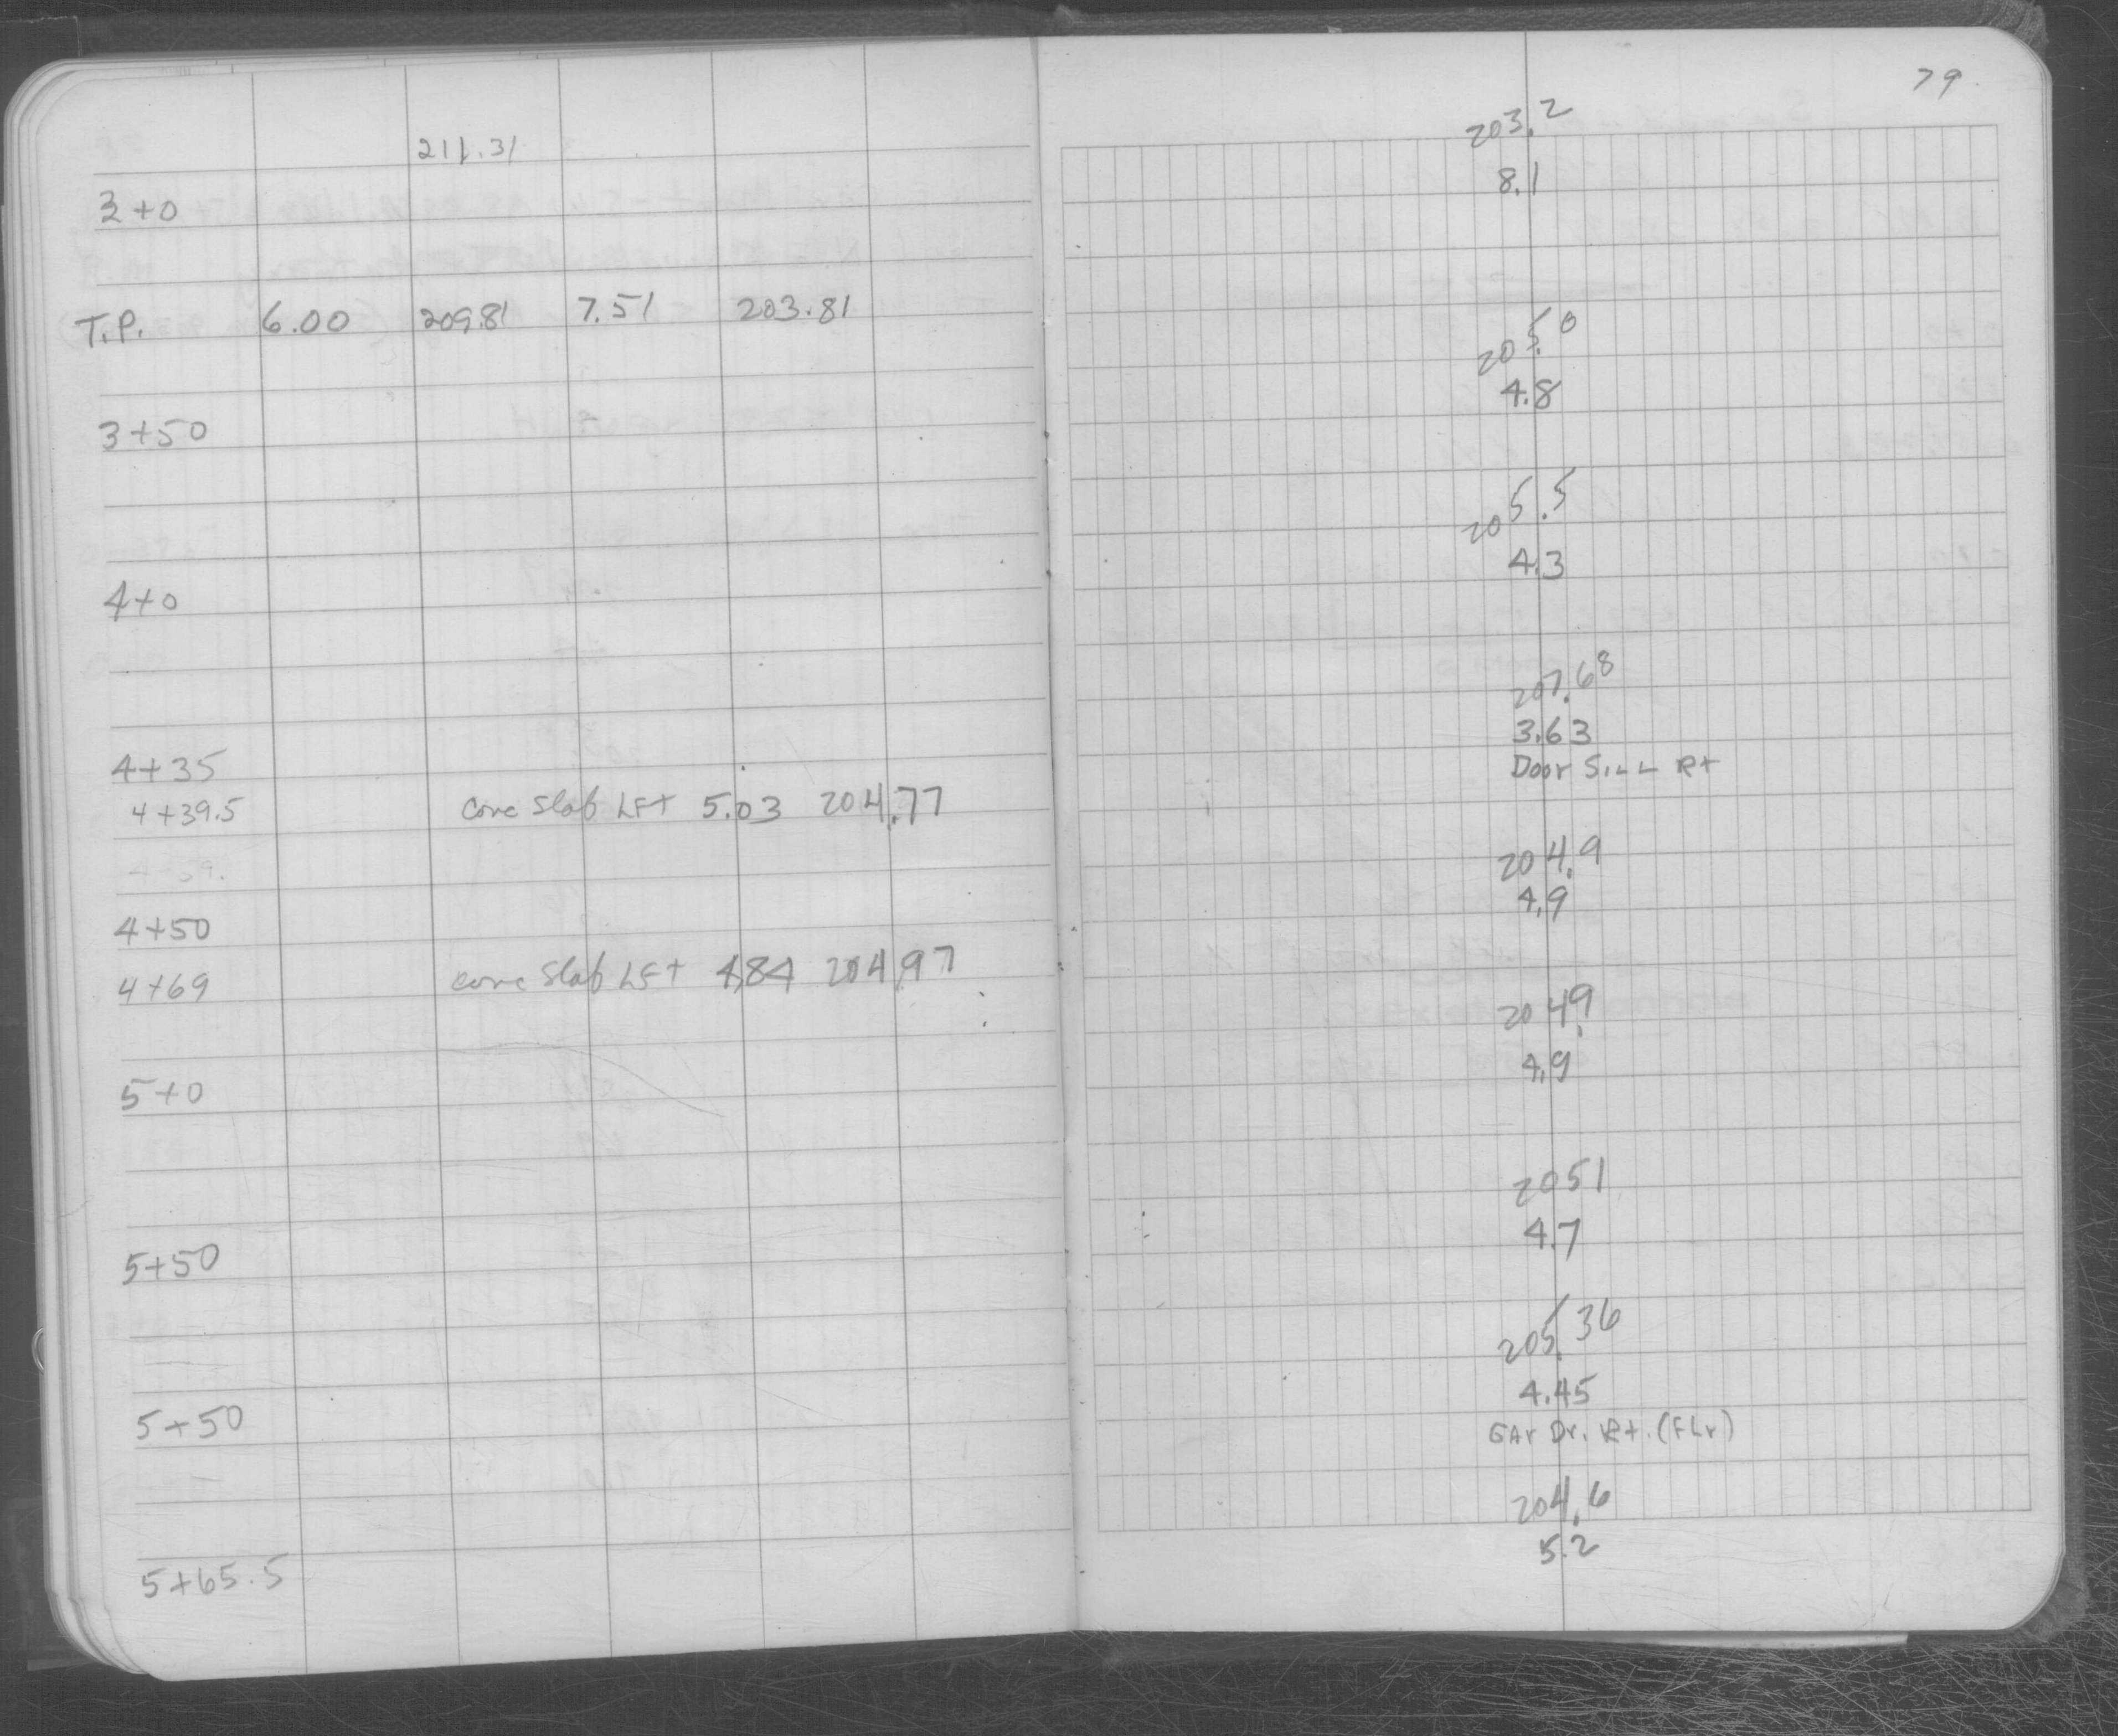 211.31
3+0
T.P. 6.00 209.81 7.51 203.81
3+50
4+0
4+35
4+39.5 Conc Slab LFt 5.03 204.77
4+50
4+69 conc Slab LFt 4.84 204.97
5+0
5+50
5+50
5+65.5
79
203.2
8.1
205.0
4.8
205.5
4.3
207.68
3.63
Door SILL Rt
204.9
4.9
204.9
4.9
2051
4.7
205.36
4.45
GAr Dr. Rt. (FLr)
204.6
5.2